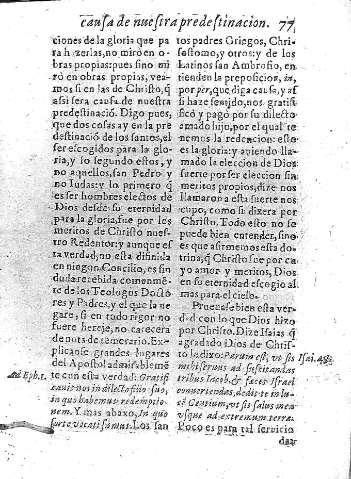 causa de nuestra predestinacion. 77
ciones de la gloria que pa
ra hazerlas, no miró en o
bras propias: pues si no mi
ró en obras propias, vea-
mos si en las de Christo, q̃
assi sera causa de nuestra
predestinació. Digo pues,
que dos cosas ay en la pre
destinació de los santos, el
ser escogidos para la glo-
ria, y lo segundo estos, y
no aquellos, san Pedro y
no Iudas: y lo primero q̃
es ser hombres electos de
Dios desde su eternidad
para la gloria, fue por los
meritos de Christo nues-
tro Redentor: y aunque es
ta verdad, no està difinida
en ningun Concilio, es sin
duda recebida comunmē-
te de los Teologos Docto
res y Padres, y el que la ne
gare, si en todo rigor no
fuere hereje, no carecera
de nota de temerario. Ex-
plicanse grandes lugares
del Apostol admirableme
Ad Eph. 1.
te con esta verdad: Gratifi
cauit nos in dilecto filio suo,
in quo habemus redemptio-
nem. Y mas abaxo, In quo
sorte vocati sumus. Los san
tos padres Griegos, Chri-
sostomo, y otros: y de los
Latinos san Ambrosio, en
tienden la preposicion, in,
por per, que diga causa, y as
si haze sentido, nos gratifi
có y pagò por su dilecto
amado hijo, por el qual te
nemos la redencion: esto
es la gloria: y auiendo lla-
mado la eleccion de Dios
suerte por ser eleccion sin
meritos propios, dize nos
llamaron a esta suerte nos
cupo, como si dixera por
Christo. Todo esto no se
puede bien entender, sino
es que afirmemos esta do-
trina, q̃ Christo fue por cu
yo amor y meritos, Dios
en su eternidad escogio al
mas para el cielo.
Prueuase bien esta ver-
dad con lo que Dios hizo
por Christo. Dize Isaias q̃
agradado Dios de Chris-
to le dixo: Parum est, vt sis
Isai. 49.
mihi seruus ad suscitandas
tribus Iacob, & faces Israel
conuertendas, dedi te in lu-
cē Gentium, vt sis salus mea
vsque ad extremum terræ.
Poco es para tal seruicio
dar